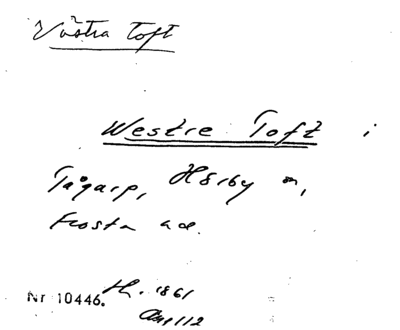 Västra Toft
Westre Toft i
Tågarp, Hörby sn,
Frosta hd.
Nr 10446. 1861
112